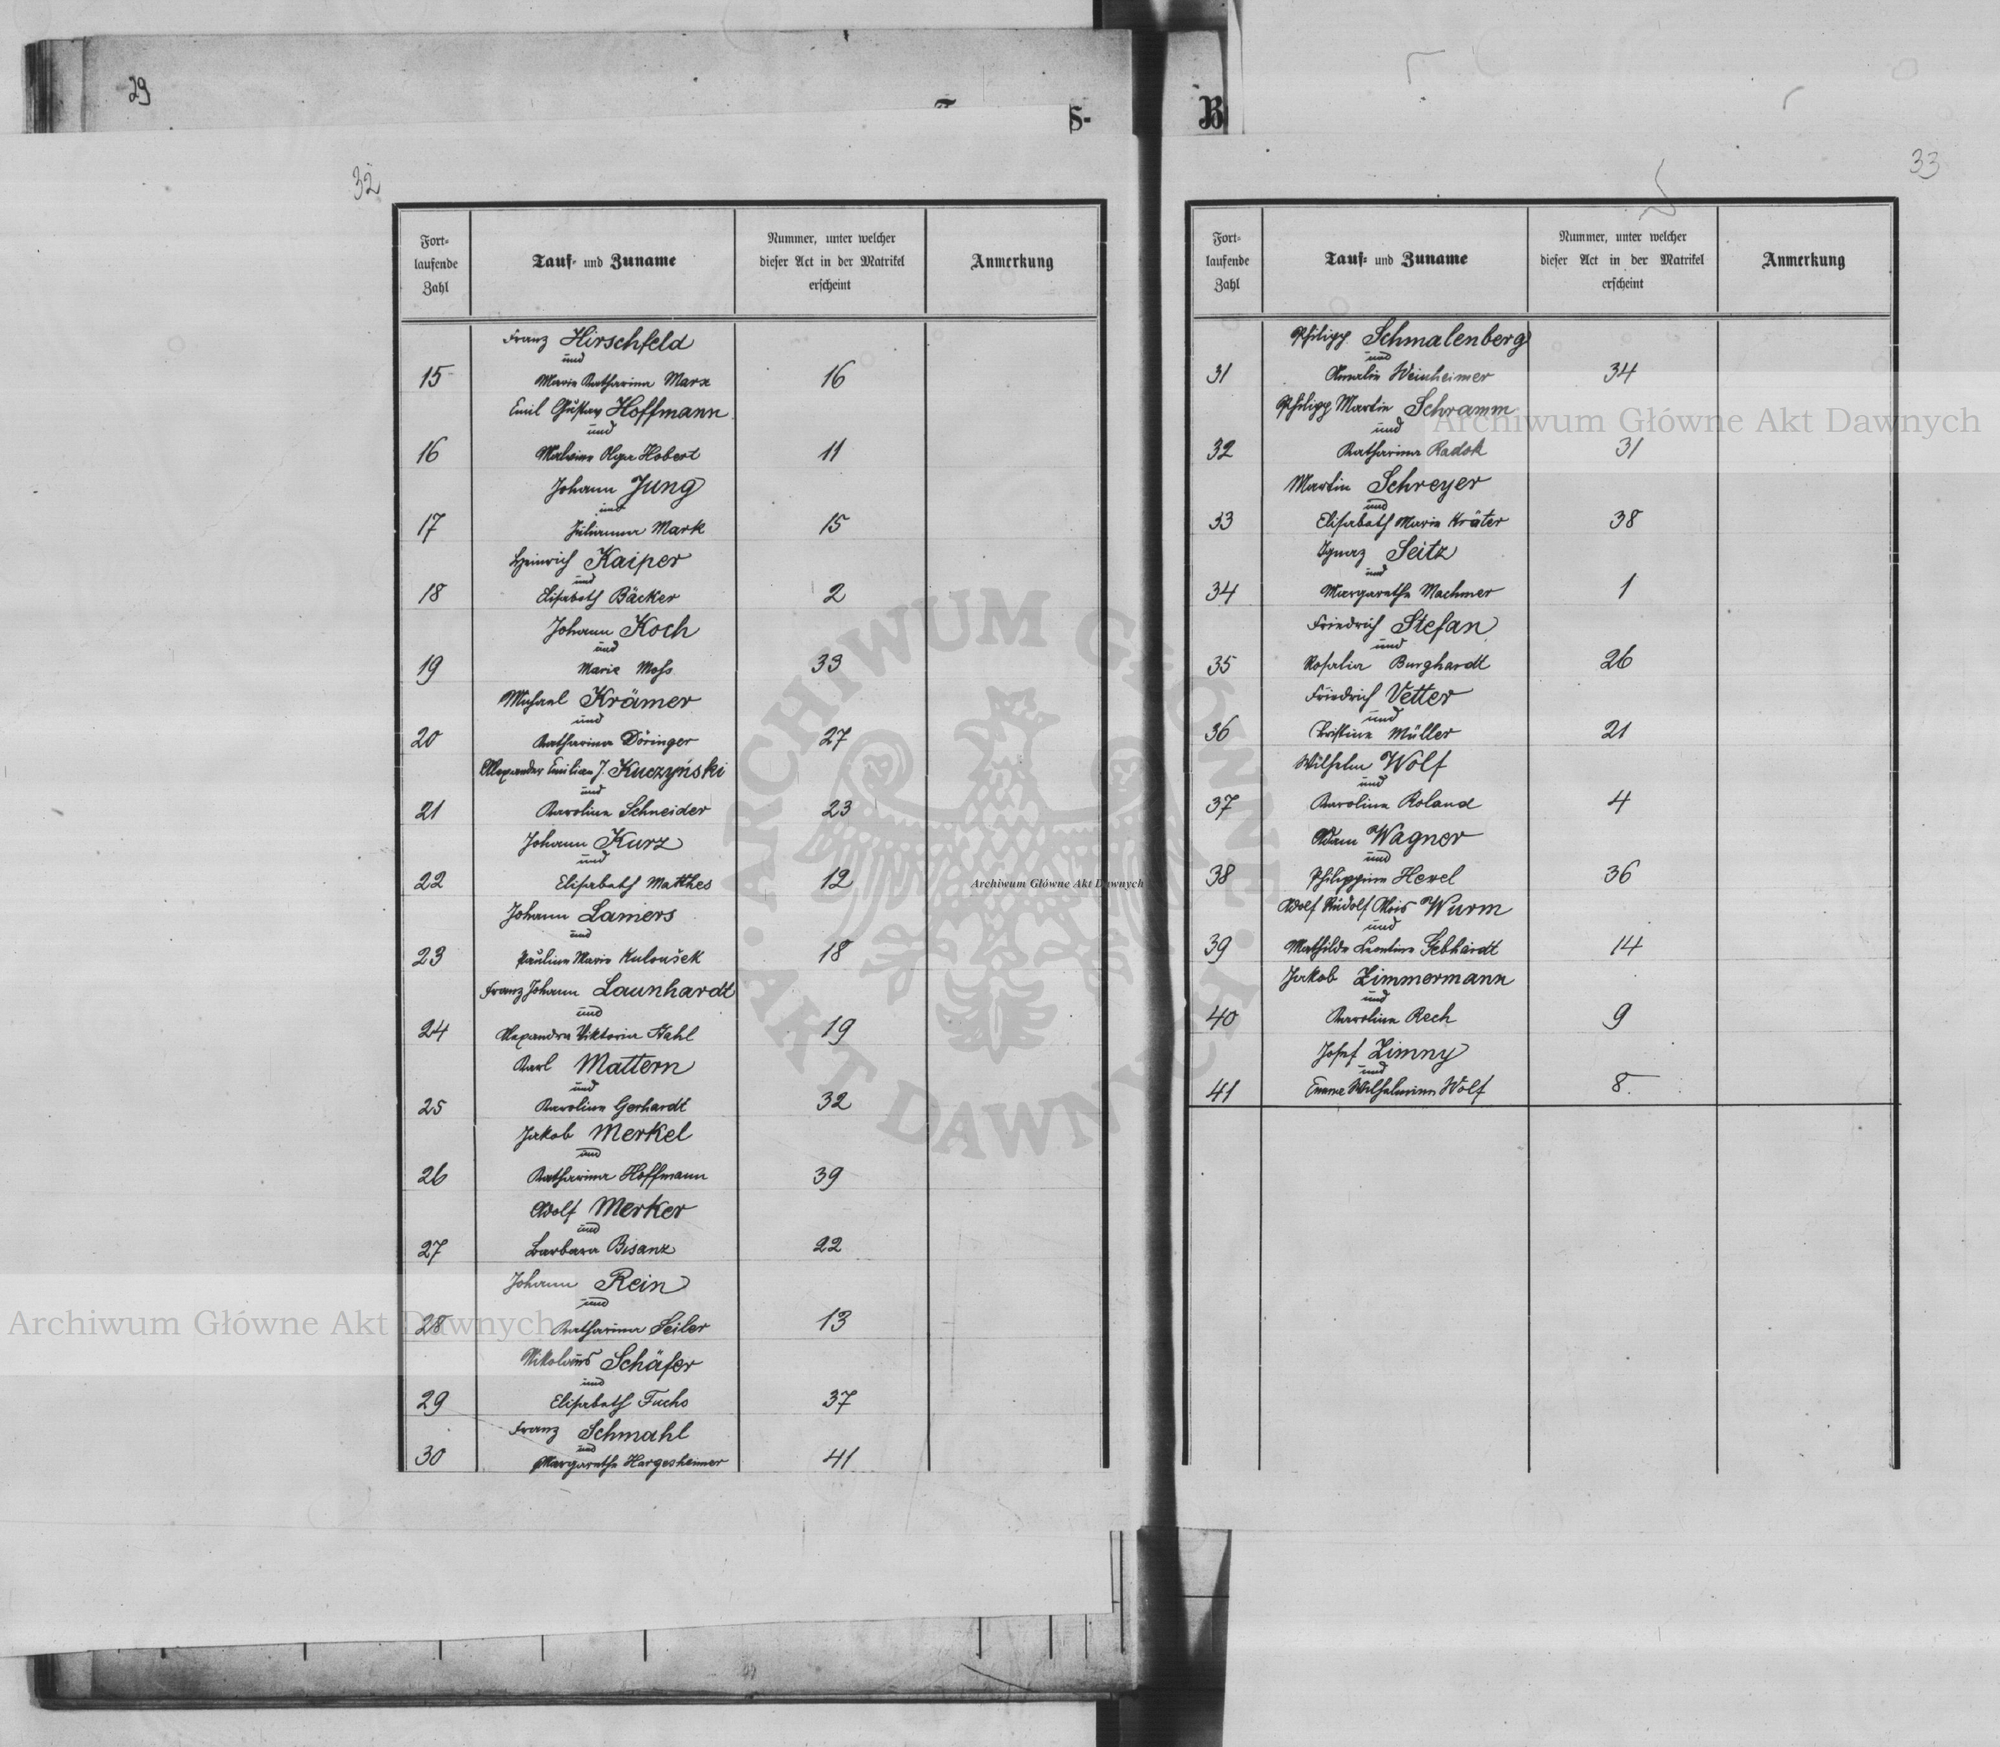 29
S-
B
32
Fort-
laufende
Zahl
Tauf- und Zuname
Nummer, unter welcher
dieser Act in der Matrikel
erscheint
Anmerkung
Franz Hirschfeld
und
15 Marie Katharina Marx 16
Emil Gustav Hoffmann
und
16 Malwine Olga Hobert 11
Johann Jung
und
17 Julianna Mark 15
Heinrich Kaiper
und
18 Elisabeth Bäcker 2
Johann Koch
und
19 Marie Moss 33
Michael Krämer
und
20 Katharina Döringer 27
Alexander Emilian J. Kuczyński
und
21 Karoline Schneider 23
Johann Kurz
und
22 Elisabeth Matthes 12
Johann Lamers
und
23 Pauline Marie Kuloušek 18
Franz Johann Launhardt
und
24 Alexandra Viktoria Hahl 19
Karl Mattern
und
25 Karoline Gerhardt 32
Jakob Merkel
und
26 Katharina Hoffmann 39
Adolf Merker
und
27 Barbara Bisanz 22
Johann Rein
und
28 Katharina Seiler 13
Nikolaus Schäfer
und
29 Elisabeth Fuchs 37
Franz Schmahl
und
30 Margarethe Hargesheimer 41
33
Fort-
laufende
Zahl
Tauf- und Zuname
Nummer, unter welcher
dieser Act in der Matrikel
erscheint
Anmerkung
Philipp Schmalenberg
und
31 Amalie Weinheimer 34
Philipp Martin Schramm
und
32 Katharina Radok 31
Martin Schreyer
und
33 Elisabeth Marie Kräter 38
Ignaz Seitz
und
34 Margarethe Machmer 1
Friedrich Stefan
und
35 Rosalia Burghardt 26
Friedrich Vetter
und
36 Kristine Müller 21
Wilhelm Wolf
und
37 Karoline Roland 4
Adam Wagner
und
38 Philippine Hevel 36
Adolf Rudolf Alois Wurm
und
39 Mathilde Leontine Gebhardt 14
Jakob Zimmermann
und
40 Karoline Rech 9
Josef Zimny
und
41 Emma Wilhelmine Wolf 8.
Archiwum Główne Akt Dawnych
Archiwum Główne Akt Dawnych
Archiwum Główne Akt Dawnych
ARCHIWUM GŁÓWNE · AKT DAWNYCH ·